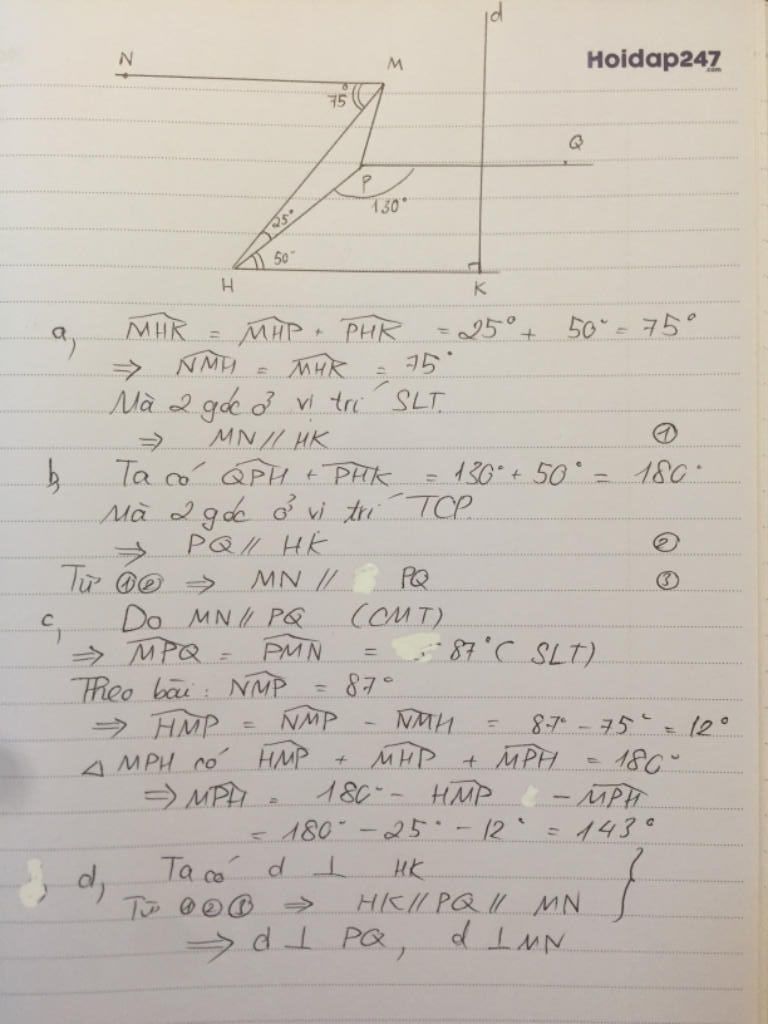 d
Hoidap247
.com
N
M
75°
Q
P
130°
25°
50°
H
K
a, MHK = MHP + PHK = 25° + 50° = 75°
⇒ NMH = MHK = 75°
Mà 2 góc ở vị trí SLT.
⇒ MN // HK ①
b, Ta có QPH + PHK = 130° + 50° = 180°
Mà 2 góc ở vị trí TCP.
⇒ PQ // HK ②
Từ ①② ⇒ MN // PQ ③
c, Do MN // PQ (CMT)
⇒ MPQ = PMN = 87° (SLT)
Theo bài: NMP = 87°
⇒ HMP = NMP - NMH = 87° - 75° = 12°
△ MPH có HMP + MHP + MPH = 180°
⇒ MPH = 180° - HMP - MPH
= 180° - 25° - 12° = 143°
d, Ta có d ⊥ HK
Từ ①②③ ⇒ HK // PQ // MN }
⇒ d ⊥ PQ, d ⊥ MN